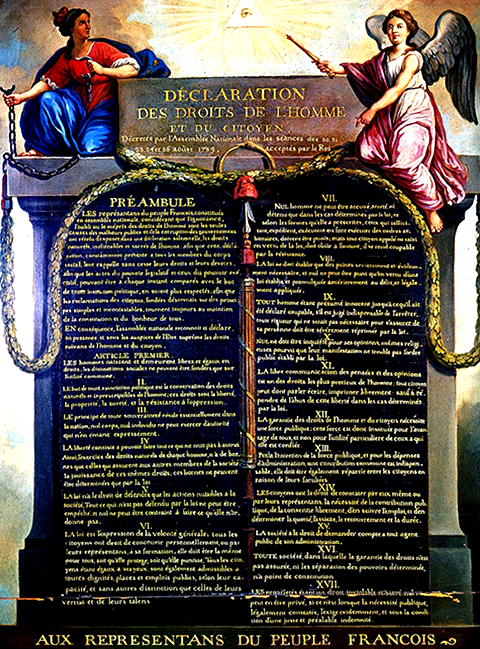 DÉCLARATION
DES DROITS DE L'HOMME
ET DU CITOYEN
Décretés par l'Assemblée Nationale dans les séances des 20, 21
23, 24 et 26 aoust 1789, acceptés par le Roi
PRÉAMBULE
LES représentans du peuple Francois, constitués
en assemblée nationale, considérant que l'ignorance,
l'oubli ou le mépris des droits de l'homme sont les seules
causes des malheurs publics et de la corruption des gouvernemens
ont résolu d'exposer dans une déclaration solemnelle, les droits
naturels, inaliénables et sacrés de l'homme; afin que cette décla-
ration, constamment présente a tous les membres du corps
social, leur rappelle sans cesse leurs droits et leurs devoirs;
afin que les actes du pouvoir legislatif et ceux du pouvoir exé-
cutif, pouvant être a chaque instant comparés avec le but
de toute institution politique, en soient plus respectés; afin que
les reclamations des citoyens, fondées désormais sur des princi-
pes simples et incontestables, tournent toujours au maintien
de la constitution et du bonheur de tous.
EN conséquence, l'assemblée nationale reconnoit et déclare,
en presence et sous les auspices de l'Etre suprême les droits
suivans de l'homme et du citoyen.
ARTICLE PREMIER.
LES hommes naissent et demeurent libres et égaux en
droits, les distinctions sociales ne peuvent être fondées que sur
l'utilité commune.
II.
LE but de toute association politique est la conservation des droits
naturels et imprescriptibles de l'homme; ces droits sont la liberté,
la propriété, la sureté, et la résistance à l'oppression.
III.
LE principe de toute souveraineté réside essentiellement dans
la nation, nul corps, nul individu ne peut exercer d'autorité
qui n'en émane expressement.
IV.
LA liberté consiste a pouvoir faire tout ce qui ne nuit pas à autrui
Ainsi, l'exercice des droits naturels de chaque homme, n'a de bor-
nes que celles qui assurent aux autres membres de la société
la jouissance de ces mêmes droits; ces bornes ne peuvent
être déterminées que par la loi
V.
LA loi n'a le droit de défendre que les actions nuisibles a la
société. Tout ce qui n'est pas défendu par la loi ne peut être
empêché, et nul ne peut être contraint à faire ce qu'elle n'or-
donne pas.
VI.
LA loi est l'expression de la volonté générale; tous les
citoyens ont droit de concourir personnellement, ou par
leurs représentans, à sa formation; elle doit être la même
pour tous, soit qu'elle protege, soit qu'elle punisse, Tous les cito-
yens étant égaux a ses yeux, sont également admissibles a
toutes dignités, places et emplois publics, selon leur ca-
pacité, et sans autres distinction que celles de leurs
vertus et de leurs talens
VII.
NUL homme ne peut être accusé, arreté, ni
détenu que dans les cas déterminés par la loi, et
selon les formes qu'elle a prescrites, ceux qui sollici-
tent, expédient, exécutent ou font exécuter des ordres ar-
bitraires, doivent être punis; mais tout citoyen appelé ou saisi
en vertu de la loi, doit obéir a l'instant, il se rend coupable
par la résistance.
VIII.
LA loi ne doit établir que des peines strictement et évidem-
ment nécessaire, et nul ne peut être puni qu'en vertu d'une
loi établie et promulguée antérierement au délit, et légale-
ment appliquée.
IX.
TOUT homme étant présumé innocent jusqu'a ce qu'il ait
été déclaré coupable, s'il est jugé indispensable de l'arrêter,
toute rigueur qui ne serait pas nécessaire pour s'assurer de
sa personne doit être sévèrement réprimée par la loi.
X.
NUL ne doit être inquiété pour ses opinions, mêmes religi-
euses pourvu que leur manifestation ne trouble pas l'ordre
public établi par la loi.
XI.
LA libre communication des pensées et des opinions
est un des droits les plus precieux de l'homme; tout citoyen
peut donc parler écrire, imprimer librement; sauf à ré-
pondre de l'abus de cette liberté dans les cas déterminés
par la loi.
XII.
LA garantie des droits de l'homme et du citoyen nécessite
une force publique; cette force est donc instituée pour l'avan-
tage de tous, et non pour l'utilité particuliere de ceux a qui
elle est confiée.
XIII.
POUR l'entretien de la force publique, et pour les dépenses
d'administration, une contribution commune est indispen-
sable; elle doit être également répartie entre les citoyens en
raison de leurs facultées
XIV.
LES citoyens ont le droit de constater par eux même ou
par leurs représentans, la nécessité de la contribution pub-
lique, de la consentir librement, d'en suivre l'emploi, et d'en
déterminer la quotité, l'assiette, le recouvrement et la durée.
XV.
LA société a le droit de demander compte a tout agent
public de son administration.
XVI.
TOUTE société, dans laquelle la garantie des droits n'est
pas assurée, ni les séparation des pouvoirs déterminée,
n'a point de constitution
XVII.
LES propriétés étant un droit inviolable et sacré, nul ne
peut en être privé, si ce n'est lorsque la nécessité publique,
légalement constatée, l'exige evidemment, et sous la condi-
tion d'une juste et préalable indemnité.
AUX REPRESENTANS DU PEUPLE FRANCOIS